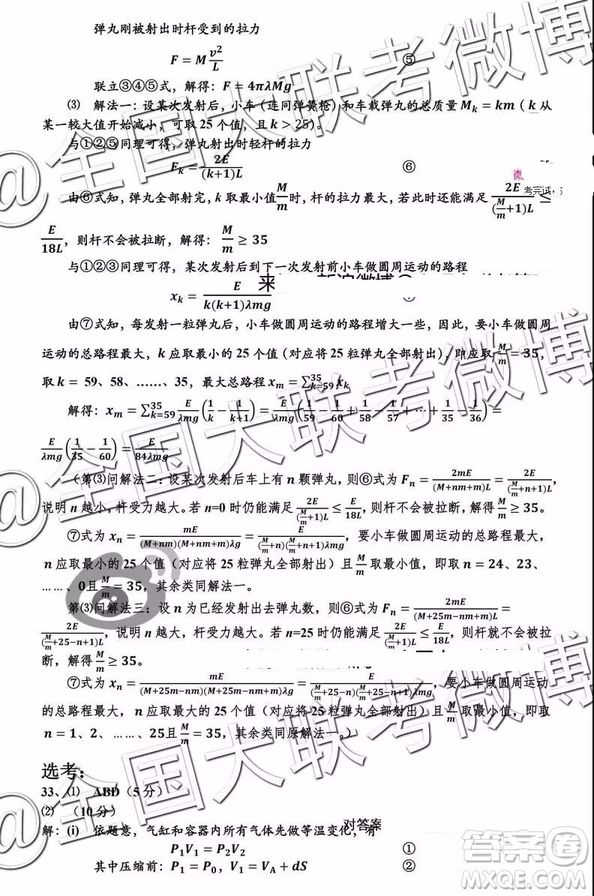 弹丸刚被射出时杆受到的拉力
F = M v²/L ⑤
联立③④⑤式，解得：F = 4πλMg
⑶ 解法一：设某次发射后，小车（连同弹簧枪）和车载弹丸的总质量 M_k = km（k 从
某一较大值开始减小，可取 25 个值，且 k > 25）。
与①②⑤同理可得，弹丸射出时轻杆的拉力
E_k = 2E/((k+1)L) ⑥
由⑥式知，弹丸全部射完，k 取最小值 M/m 时，杆的拉力最大，若此时还能满足 2E/((M/m+1)L) ≤
E/18L，则杆不会被拉断，解得：M/m ≥ 35
与①②③同理可得，某次发射后到下一次发射前小车做圆周运动的路程
x_k = E/(k(k+1)λmg)
由⑦式知，每发射一粒弹丸，小车做圆周运动的路程增大一些，因此，要小车做圆周
运动的总路程最大，k 应取最小的 25 个值（对应将 25 粒弹丸全部射出），即应取
取 k = 59、58、……、35，最大总路程 x_m = ∑_{k=59}^{35} x_k
解得：x_m = ∑_{k=59}^{35} E/λmg (1/k − 1/(k+1)) = E/λmg (1/59 − 1/60 + 1/58 − 1/59 + 1/57 − 1/58 + ⋯ + 1/35 − 1/36) =
E/λmg (1/35 − 1/60) = E/84λmg
（第⑶问解法二：设某次发射后车上有 n 颗弹丸，则⑥式为 F_n = 2mE/((M+nm+m)L) = 2E/((M/m+n+1)L)，
说明 n 越小，杆受力越大。若 n=0 时仍能满足 2E/((M/m+1)L) ≤ E/18L，则杆不会被拉断，解得 M/m ≥ 35。
⑦式为 x_n = mE/((M+nm)(M+nm+m)λg) = E/((M/m+n)(M/m+n+1)λmg)，要小车做圆周运动的总路程最大，
n 应取最小的 25 个值（对应将 25 粒弹丸全部射出）且 M/m 取最小值，即取 n = 24、23、
……、0且 M/m = 35，其余类同解法一。
第⑶问解法三：设 n 为已经发射出去弹丸数，则⑥式为 F_n = 2mE/((M+25m−nm+m)L) =
2E/((M/m+25−n+1)L)，说明 n 越大，杆受力越大。若 n=25 时仍能满足 2E/((M/m+1)L) ≤ E/18L，则杆不会被拉
断，解得 M/m ≥ 35。
⑦式为 x_n = mE/((M+25m−nm)(M+25m−nm+m)λg) = E/((M/m+25−n)(M/m+25−n+1)λmg)，要小车做圆周运动
的总路程最大，n 应取最大的 25 个值（对应将 25 粒弹丸全部射出）且 M/m 取最小值，即取
n = 1、2、……、25且 M/m = 35，其余类同原解法一。）
选考：
33、⑴ ABD（5 分）
⑵ （10 分）
对答案
解：(i) 依题意，气缸和容器内所有气体先做等温变化，有
P₁V₁ = P₂V₂ ①
其中压缩前：P₁ = P₀，V₁ = V_A + dS ②
@全国大联考微博
答案圈
MXQE.COM